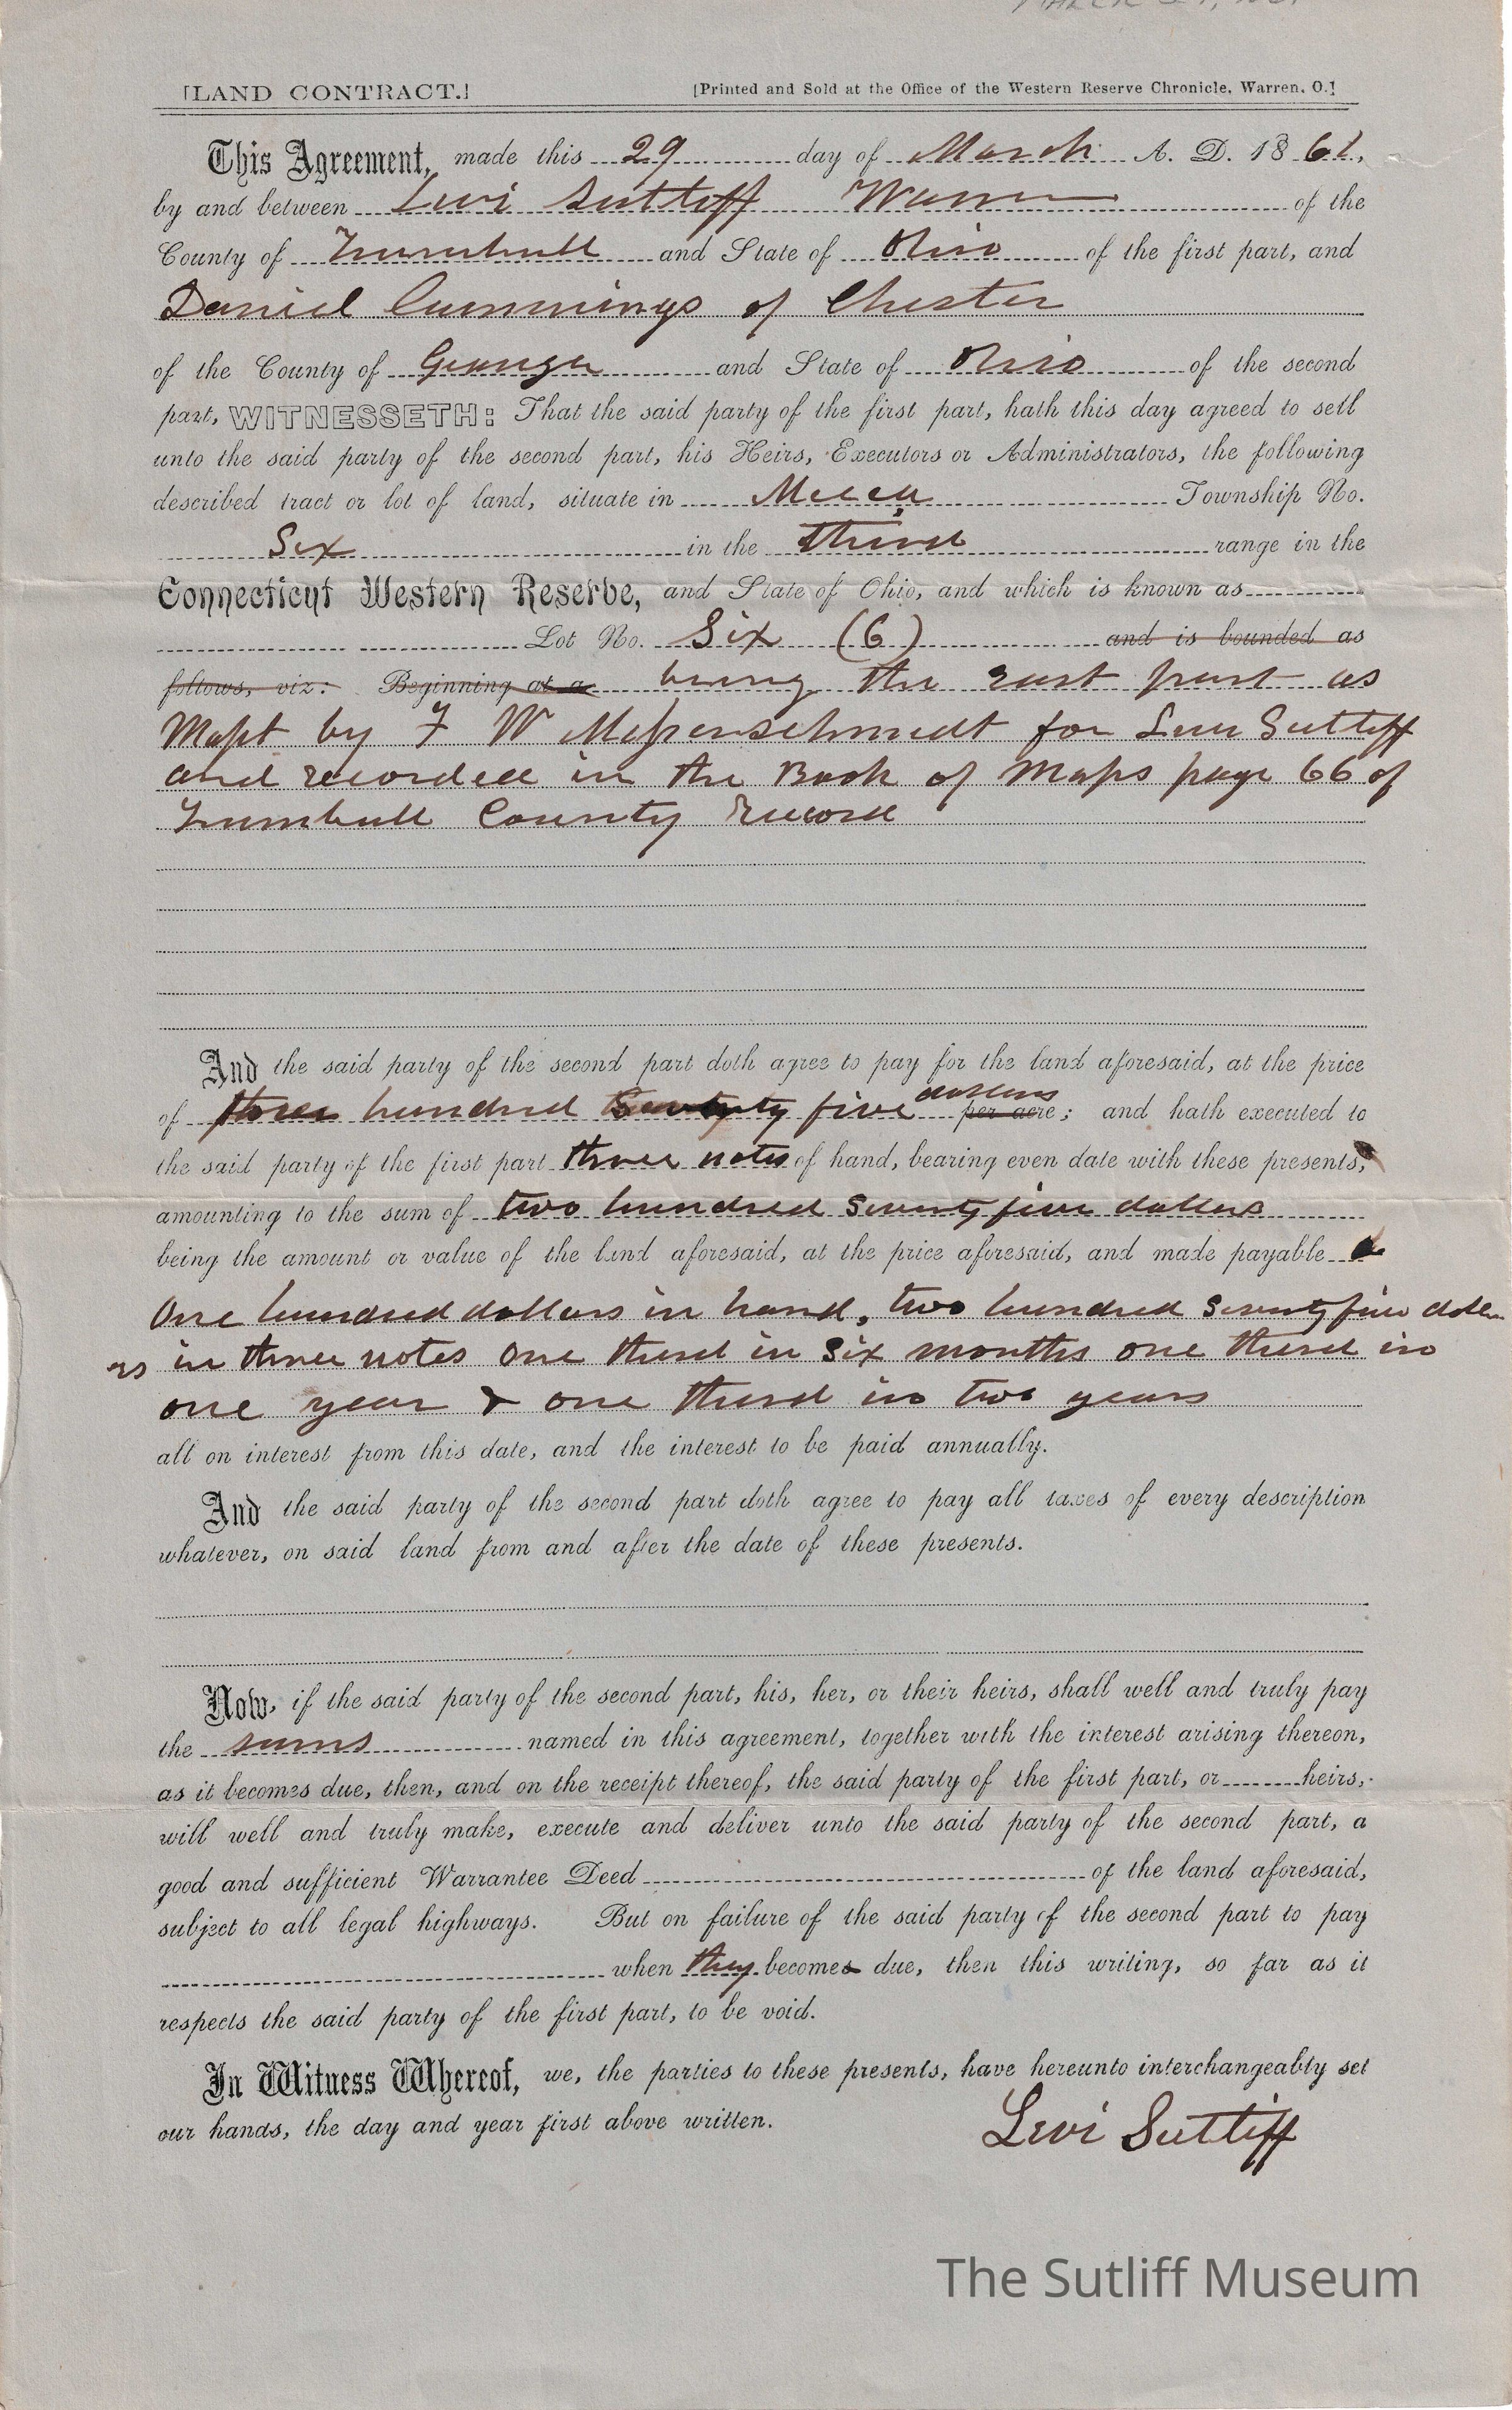 [LAND CONTRACT.] [Printed and Sold at the Office of the Western Reserve Chronicle, Warren, O.]
This Agreement, made this 29 day of March A. D. 1861,
by and between Levi Sutliff Warren of the
County of Trumbull and State of Ohio of the first part, and
Daniel Cummings of Chester
of the County of Geauga and State of Ohio of the second
part, WITNESSETH: That the said party of the first part, hath this day agreed to sell
unto the said party of the second part, his Heirs, Executors or Administrators, the following
described tract or lot of land, situate in Mecca Township No.
Six in the third range in the
Connecticut Western Reserve, and State of Ohio, and which is known as
Lot No. Six (6) and is bounded as
follows, viz: Beginning at a being the east part as
Mapt by F W for Levi Sutliff
and recorded in the Book of Maps page 66 of
Trumbull County Record
And the said party of the second part doth agree to pay for the land aforesaid, at the price
of three hundred Seventy five dollars per acre; and hath executed to
the said party of the first part three notes of hand, bearing even date with these presents,
amounting to the sum of two hundred Seventy five dollars
being the amount or value of the land aforesaid, at the price aforesaid, and made payable
One hundred dollars in hand, two hundred Seventy five doll
ars in three notes One third in Six months one third in
one year & one third in two years
all on interest from this date, and the interest to be paid annually.
And the said party of the second part doth agree to pay all taxes of every description
whatever, on said land from and after the date of these presents.
Now, if the said party of the second part, his, her, or their heirs, shall well and truly pay
the sums named in this agreement, together with the interest arising thereon,
as it becomes due, then, and on the receipt thereof, the said party of the first part, or heirs,
will well and truly make, execute and deliver unto the said party of the second part, a
good and sufficient Warrantee Deed of the land aforesaid,
subject to all legal highways. But on failure of the said party of the second part to pay
when they becomes due, then this writing, so far as it
respects the said party of the first part, to be void.
In Witness Whereof, we, the parties to these presents, have hereunto interchangeably set
our hands, the day and year first above written.
Levi Sutliff
The Sutliff Museum